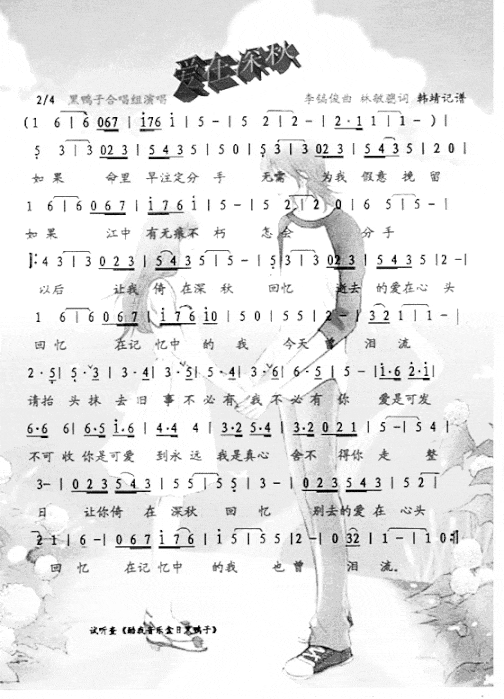 爱在深秋
2/4 黑鸭子合唱组演唱 李镐俊曲 林敏骢词 韩靖记谱
(1 6 | 6 067 | 1 76 i | 5 - | 5 2 | 2 - | 2 · 1 1 | 1 - ) |
5 3 | 3 023 | 5435 | 1 - | 150 | 5 3 | 3 023 | 5435 | 2 - | 20 |
如果 命里 早注定分手 无需 为我 假意 挽留
1 6 | 6 067 | 1 76 i | 5 - | 5 2 | 2 0 | 6 5 | 5 - |
如果 江中 有无痕不朽 怎会 分手
4 3 | 3 023 | 5435 | 5 - | 5 3 | 3 023 | 5435 | 2 - |
以后 让我 倚在深秋 回忆 逝去 的爱在心头
1 6 | 6 067 | 1 76 10 | 50 | 55 | 2 - | 321 | 1 - |
回忆 在记忆中 的我 今天曾 泪流
2 · 5 | 5 · 3 | 3 · 4 | 3 · 5 | 5 · 4 | 3 · 2 | 5 · 5 | 5 - | i · 6 2 · i |
请抬头抹去旧事不必有我不必有你 爱是可发
6 · 6 6 | 6 · 5 i · 6 | 4 · 4 4 | 3 · 2 5 · 4 | 3 · 2 021 | 5 - | 54 |
不可收你是可爱 到永远 我是真心 舍不得你走 整
3 - | 023 5435 | 1 - | 55 | 55 | 3 - | 023 5435 | 2 - |
日 让你倚在深秋 回忆 别去的爱在心头
2 1 | 6 - | 067 176 i | 5 - | 55 | 2 - | 032 | 1 - | 10 :||
回忆 在记忆中 的我 也曾 泪流。
试听查《酷我音乐盒日黑鸭子》